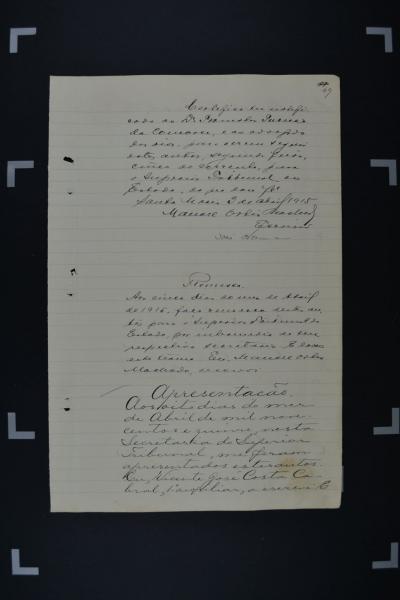 69
Certifico ter notifi
cado ao Dr. Promotor Publico
da Comarca, e ao advogado
do réo, para serem
autos, segunda feira,
cinco do corrente, para
o Superior Tribunal do
Estado, do que dou fé.
Santa Maria 2 de Abril 1915
Machado
Escrivão
Remessa
Aos cinco dias do mez de Abril
de 1915, faço remessa destes au
tos para o Superior Tribunal do
Estado, por intermedio de seu
respectivo secretario. E dou
este termo. Eu,
Machado, escrivão
Apresentação
Aos oito dias do mez
de Abril de mil nove-
centos e quinze, nesta
Secretaria do Superior
Tribunal, me foram
apresentados estes autos.
Eu, Vicente José Costa Ca
bral, auxiliar, a escrevi. E